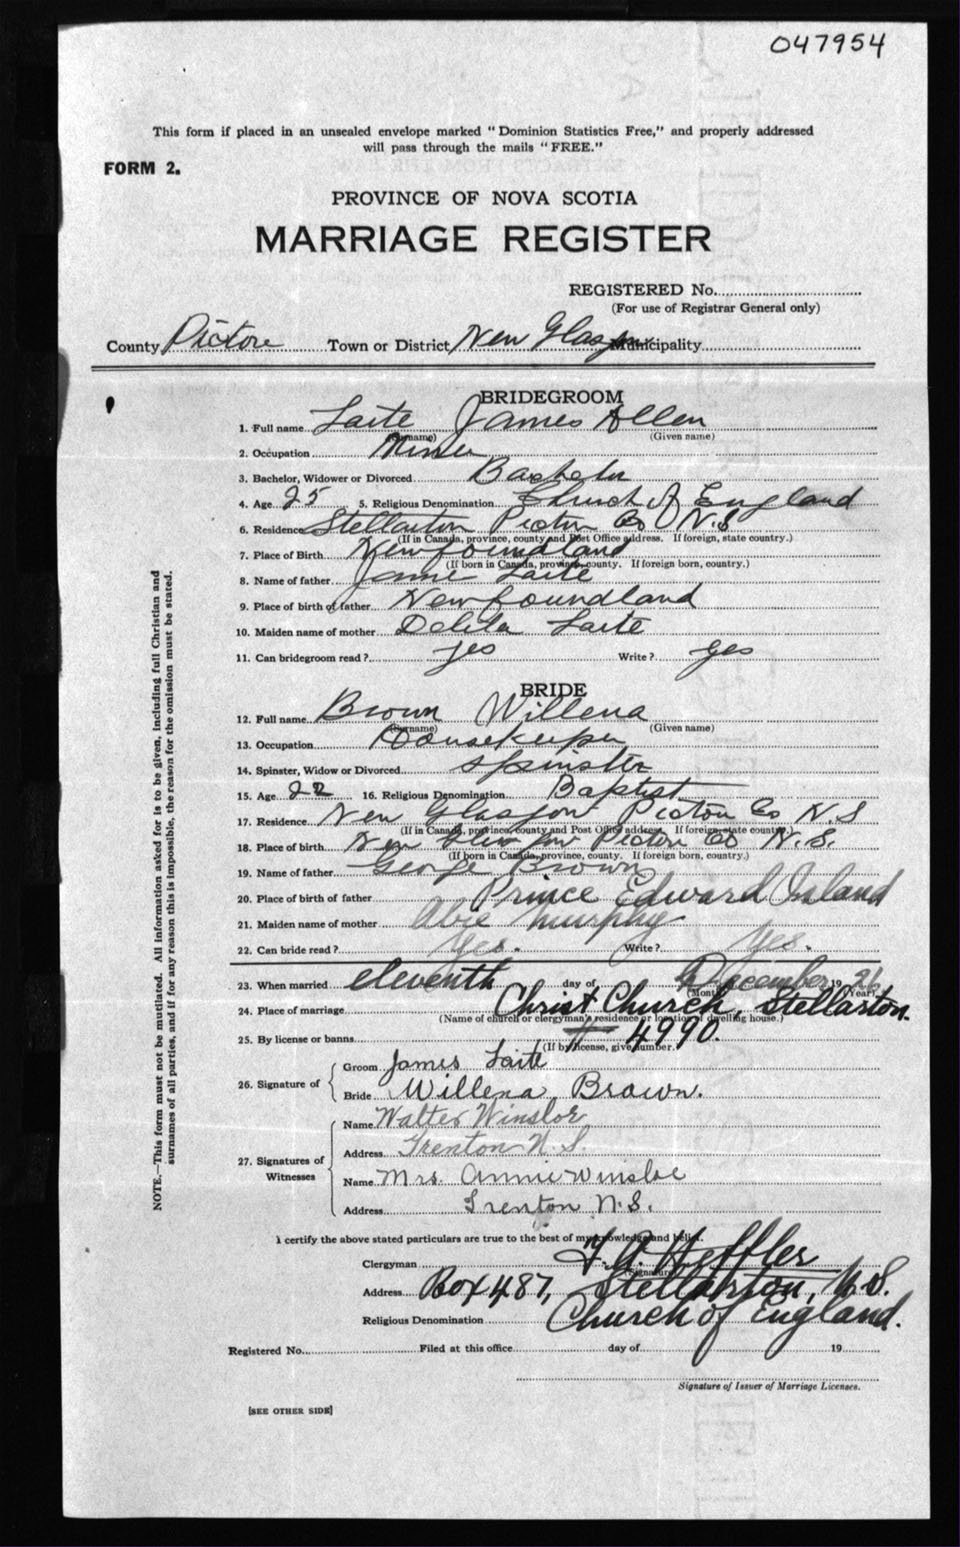 047954
This form if placed in an unsealed envelope marked "Dominion Statistics Free," and properly addressed
will pass through the mails "FREE."
FORM 2.
PROVINCE OF NOVA SCOTIA
MARRIAGE REGISTER
REGISTERED No.
(For use of Registrar General only)
County Pictou Town or District New Glasgow Municipality
BRIDEGROOM
1. Full name Laite James Allen
(Surname) (Given name)
2. Occupation Miner
3. Bachelor, Widower or Divorced Bachelor
4. Age 25 5. Religious Denomination Church of England
6. Residence Stellarton Pictou Co N.S
(If in Canada, province, county and Post Office address. If foreign, state country.)
7. Place of Birth Newfoundland
(If born in Canada, province, county. If foreign born, country.)
8. Name of father Laite
9. Place of birth of father Newfoundland
10. Maiden name of mother Delila Laite
11. Can bridegroom read? yes Write? yes
BRIDE
12. Full name Brown Willena
(Surname) (Given name)
13. Occupation Housekeeper
14. Spinster, Widow or Divorced Spinster
15. Age 22 16. Religious Denomination Baptist
17. Residence New Glasgow Pictou Co N.S
(If in Canada, province, county and Post Office address. If foreign, state country.)
18. Place of birth New Glasgow Pictou Co N.S.
(If born in Canada, province, county. If foreign born, country.)
19. Name of father George Brown
20. Place of birth of father Prince Edward Island
21. Maiden name of mother Abie Murphy
22. Can bride read? Yes. Write? Yes.
23. When married eleventh day of December 1926
(Month) (Year)
24. Place of marriage Christ Church, Stellarton.
(Name of church or clergyman's residence or location of dwelling house.)
25. By license or banns # 4990.
(If by license, give number.)
26. Signature of Groom James Laite
Bride Willena Brown.
27. Signatures of Witnesses
Name Walter Winsloe
Address Trenton N.S.
Name Mrs. Annie Winsloe
Address Trenton N.S.
I certify the above stated particulars are true to the best of my knowledge and belief.
Clergyman Heffler
(Signature)
Address Box 487, Stellarton, N.S.
Religious Denomination Church of England.
Registered No. Filed at this office day of 19
Signature of Issuer of Marriage Licenses.
[SEE OTHER SIDE]
NOTE.—This form must not be mutilated. All information asked for is to be given, including full Christian and
surnames of all parties, and if for any reason this is impossible, the reason for the omission must be stated.